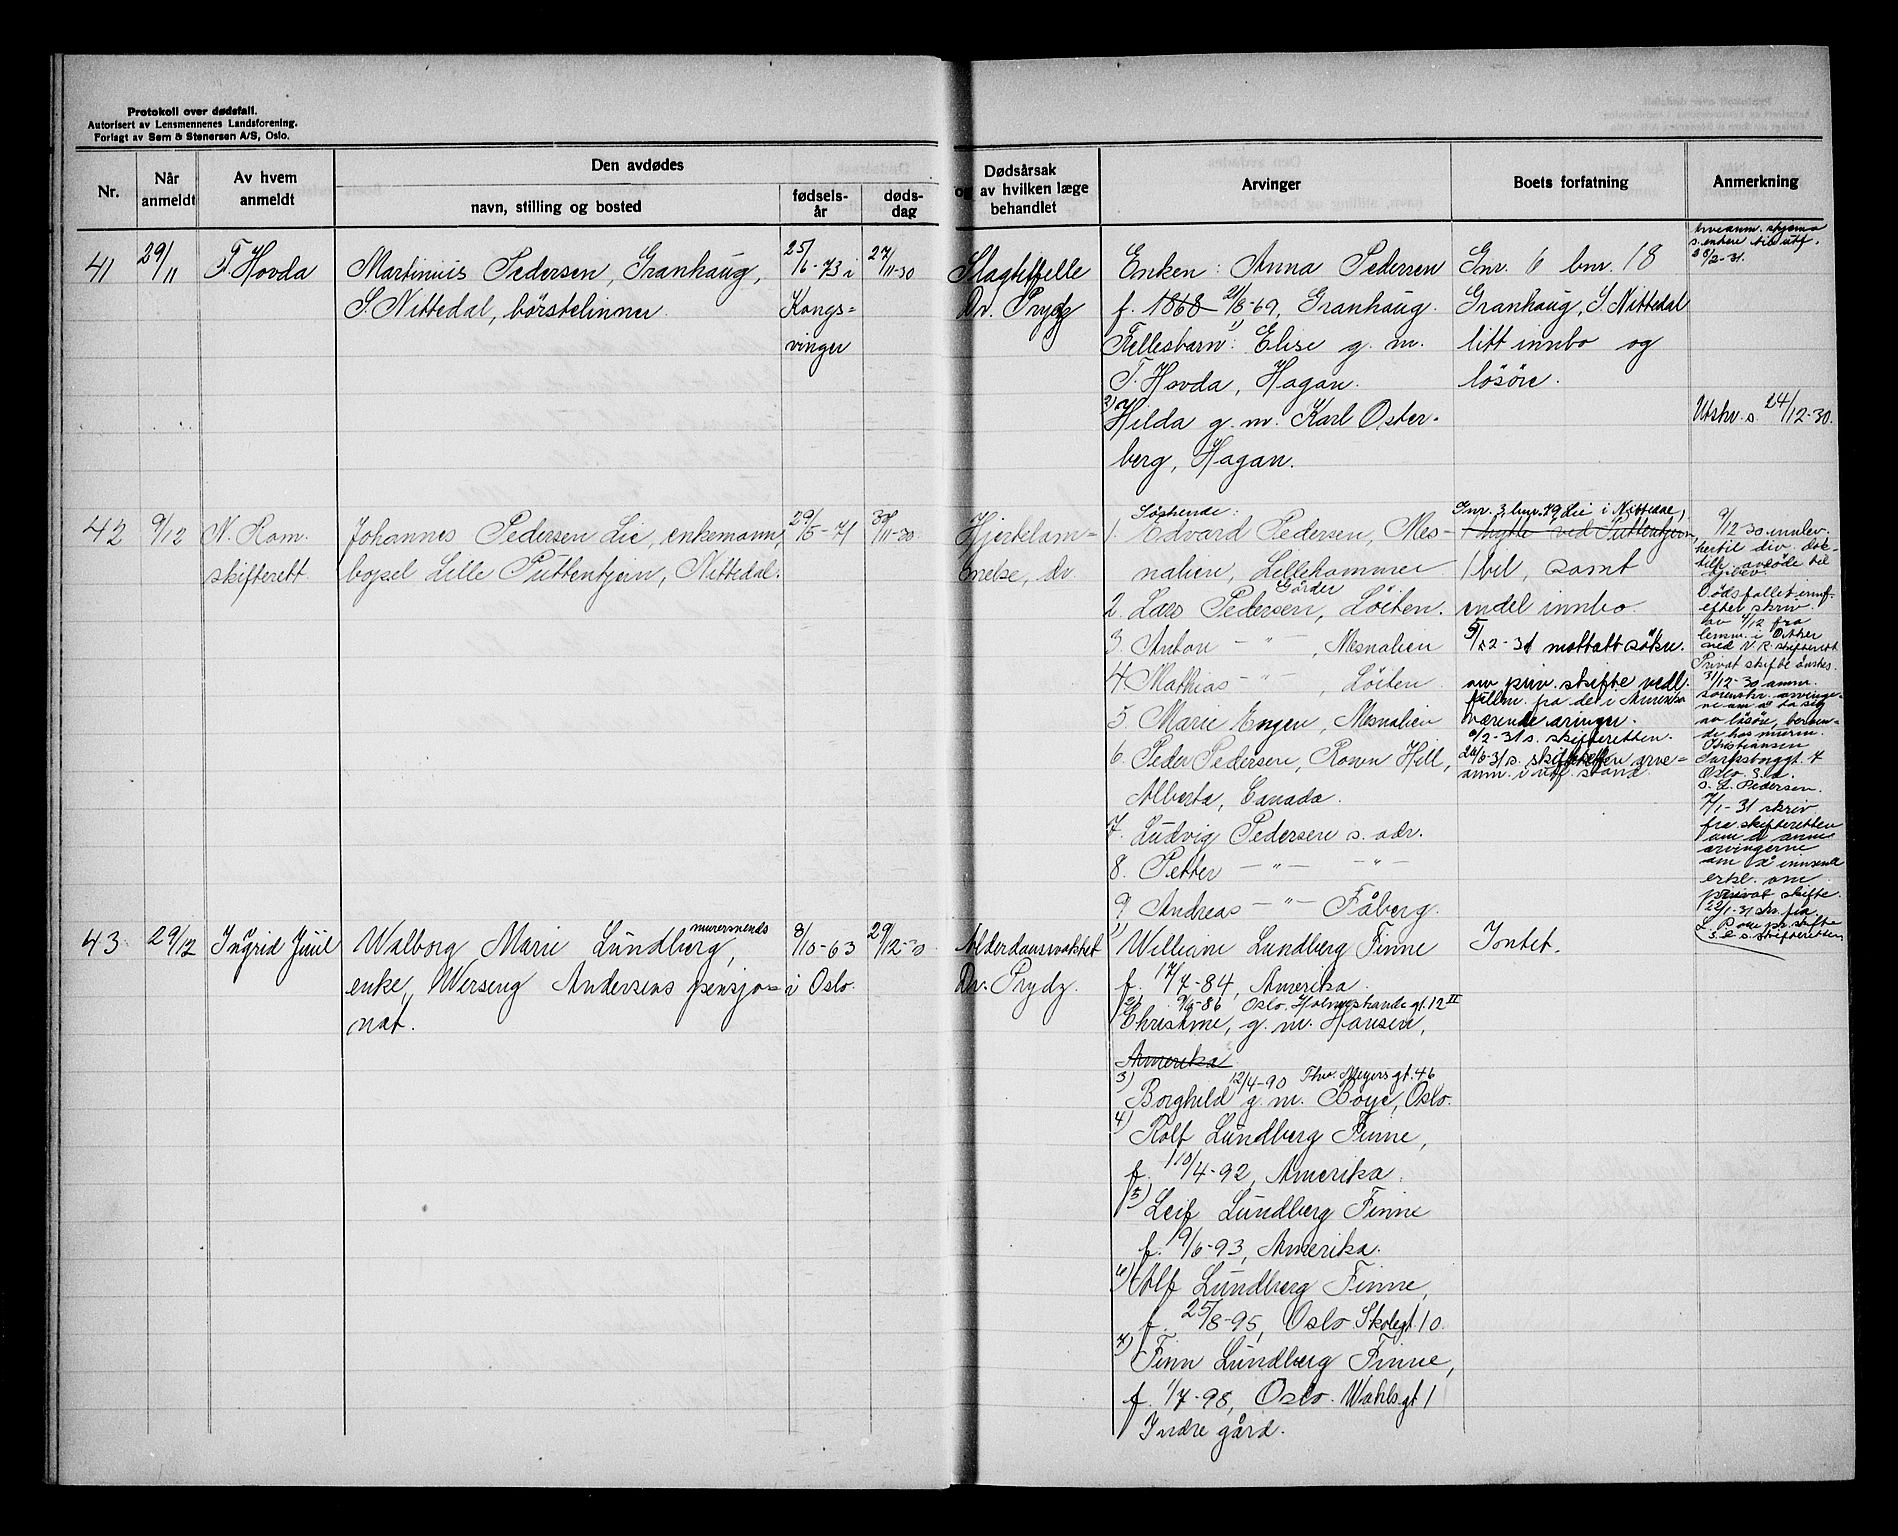 Protokoll over dødsfall.
Autorisert av Lensmennenes Landsforening.
Forlagt av Sem & Stenersen A/S, Oslo.
Nr.
Når anmeldt
Av hvem anmeldt
Den avdødes
navn, stilling og bosted
fødsels-år
døds-dag
Dødsårsak
og av hvilken læge
behandlet
Arvinger
Boets forfatning
Anmerkning
41
29/11
T. Hovda
Martinius Pedersen, Granhaug,
S. Nittedal, børstelinner.
25/6-73 i
Kongs=
vinger
27/11-30
Slagtilfelle
Dr. Prydz
Enken: Anna Pedersen
f. 1868 21/8-69, Granhaug.
Fellesbarn: 1) Elise g. m.
T. Hovda, Hagan.
2) Hilda g. m. Karl Oster-
berg, Hagan.
Gnr. 6 bnr. 18
Granhaug, S. Nittedal
litt innbo og
løsøre.
arveanm. skjema
s. enken til utf.
28/2-31.
Utskr. s. 24/12-30.
42
9/12
N. Rom.
skifterett
Johannes Pedersen Lie, enkemann,
bopel Lille Puttentjern, Nittedal.
29/5-71
30/11-30
Hjertelam=
melse, dr
Søskende:
1. Edvard Pedersen, Mes-
nalien, Lillehammer
2. Lars Pedersen, Gårder Löiten.
3. Anton -"-, Mesnalien
4 Mathias -"-, Löiten
5. Marie Engen, Mesnalien
6. Peder Pedersen, Rown Hill,
Alberta, Canada.
7. Ludvig Pedersen s. adr.
8. Petter -"- -"-
9 Andreas -"- Fåberg.
Gnr. 3 bnr. 79 Lie i Nittedal,
1 hytte ved Puttentjern,
1 bil, samt
endel innbo
5/12-31 mottatt søkn.
om priv. skifte vedl.
fullm. fra de i Amerika
værende arvinger.
9/2-31 s. skifteretten.
26/6-31 s. skifteretten arve=
anm. i utf. stand.
9/12-30 innlev.
hertil div. dok-
Dødsfallet innf.
efter skriv.
av 4/12 fra
lensm. i
med N. R. skifterett
Privat skifte ønskes.
31/12-30 anm.
sorenskr. arvinge-
ne om å ta sig
av løsøre, beroen-
de hos murm.
Kristiansen
Sarpsborggt. 7
Oslo.
s. L. Pedersen.
7/1-31 skriv
fra skifteretten
om å anm.
arvingerne
om å innsende
erkl. om
privat skifte.
22/1-31 skr. fra
L. P. om pr. skifte
s. d. s. skifteretten
43
29/12
Ingrid Juul
Walborg Marie Lundberg, murermends
enke, Werseng Andersens pensjo=
nat.
8/10-63
i Oslo.
29/12-30
Alderdomssvakhet
Dr. Prydz.
1) William Lundberg Finne
f. 17/7-84, Amerika.
2) 9/5-86 Oslo. Holmestrandsgt. 12 II
Christine, g. m. Hansen,
Amerika
3) 12/4-90 Thv. Meyersgt. 46
Borghild g. m. Boye, Oslo.
4) Rolf Lundberg Finne,
f. 10/4-92, Amerika.
5) Leif Lundberg Finne
f. 9/6-93, Amerika.
6) Alf Lundberg Finne,
f. 25/8-95, Oslo Skolegt 10.
7) Finn Lundberg Finne,
f. 1/7-98, Oslo. Wahlsgt 1
Indre gård.
Intet.